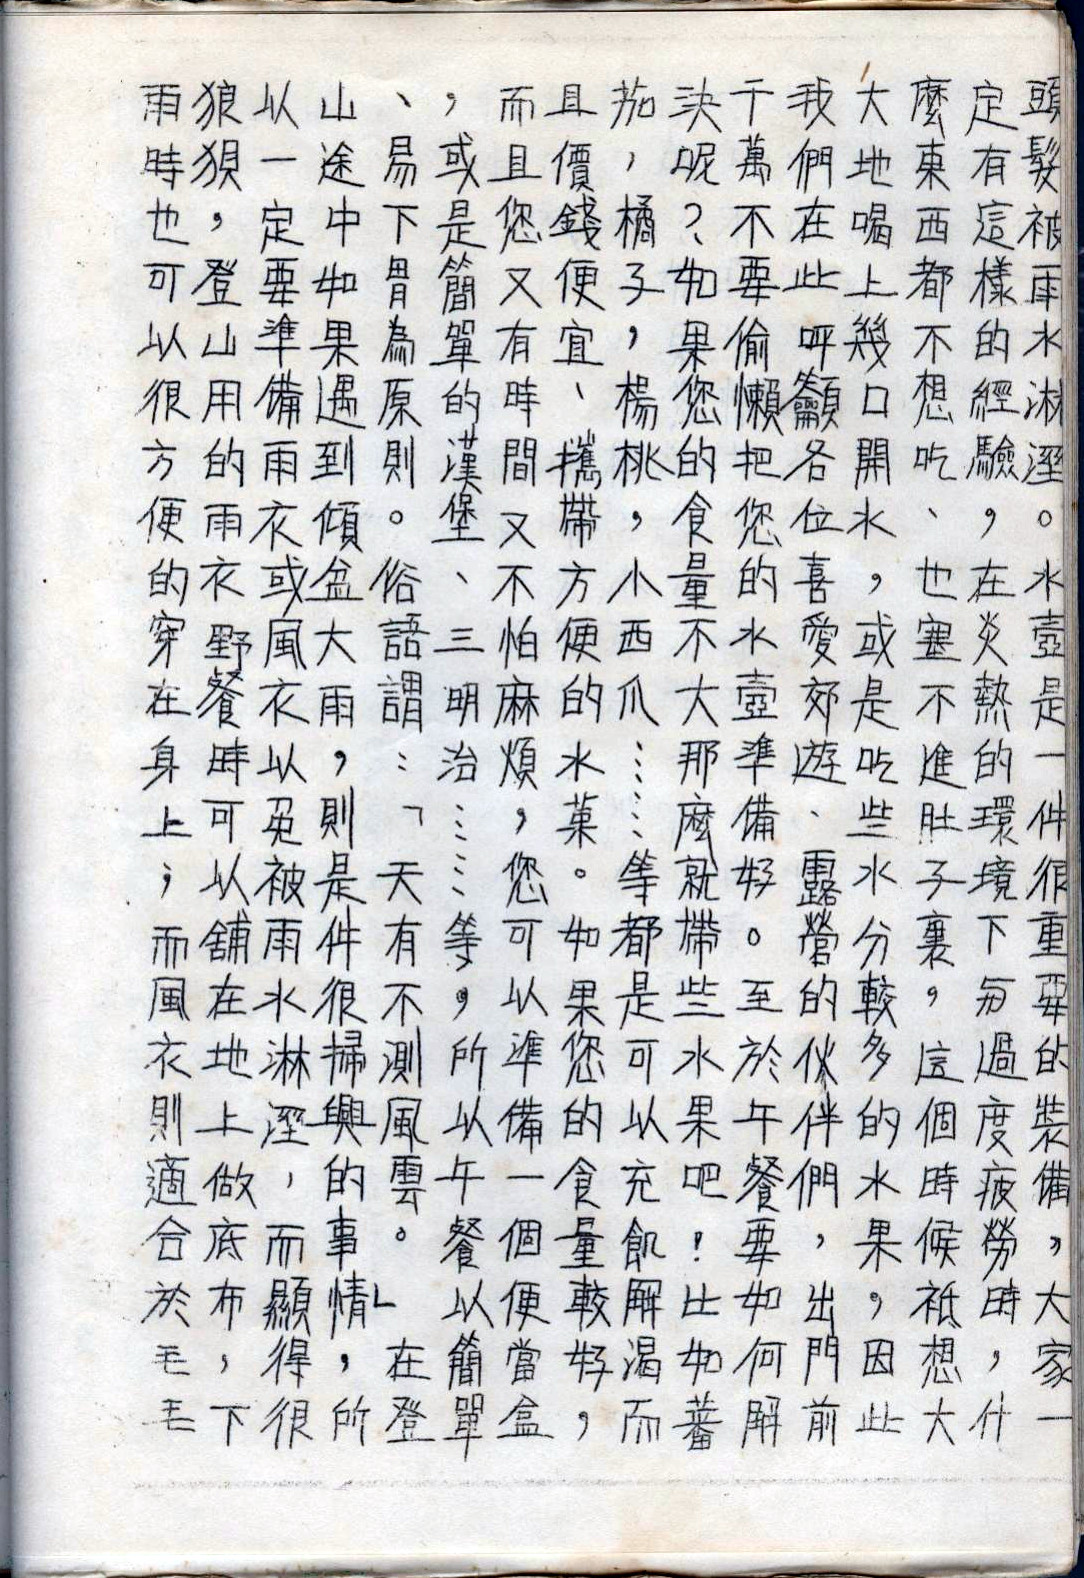 頭髮被雨水淋溼。水壺是一件很重要的裝備，大家一
定有這樣的經驗，在炎熱的環境下每過度疲勞時，什
麼東西都不想吃、也塞不進肚子裏，這個時候祗想大
大地喝上幾口開水，或是吃些水分較多的水果，因此
我們在此呼籲各位喜愛郊遊、露營的伙伴們，出門前
千萬不要偷懶把您的水壺準備好。至於午餐要如何解
決呢？如果您的食量不大那麼就帶些水果吧！比如蕃
茄，橘子，楊桃，小西瓜……等都是可以充飢解渴而
且價錢便宜、攜帶方便的水菓。如果您的食量較好，
而且您又有時間又不怕麻煩，您可以準備一個便當盒
，或是簡單的漢堡、三明治……等，所以午餐以簡單
、易下胃為原則。俗語謂：「天有不測風雲。」在登
山途中如果遇到傾盆大雨，則是件很掃興的事情，所
以一定要準備雨衣或風衣以免被雨水淋溼，而顯得很
狼狽，登山用的雨衣野餐時可以舖在地上做底布，下
雨時也可以很方便的穿在身上；而風衣則適合於毛毛